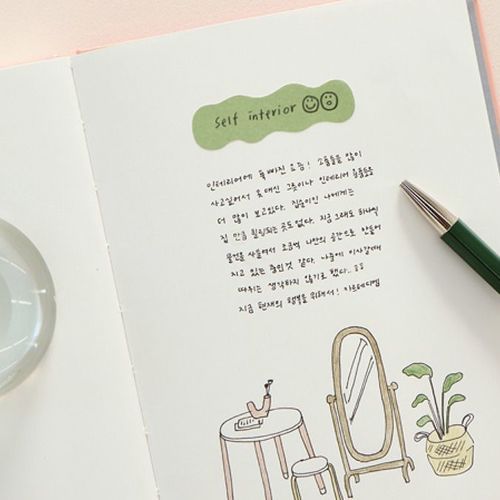 self interior
인테리어에 푹 빠진 요즘! 고름들을 많이
사고싶어서 옷 대신 그릇이나 인테리어 용품들을
더 많이 보고있다. 집순이인 나에게는
집 만큼 힐링되는 곳도 없다. 지금 그래도 하나씩
물건을 사들여서 조금씩 나만의 공간으로 만들어
지고 있는 중인것 같다. 나중에 이사갈거
따위는 생각하지 않기로 했다..
지금 현재의 행복을 위해서! 카르페디엠